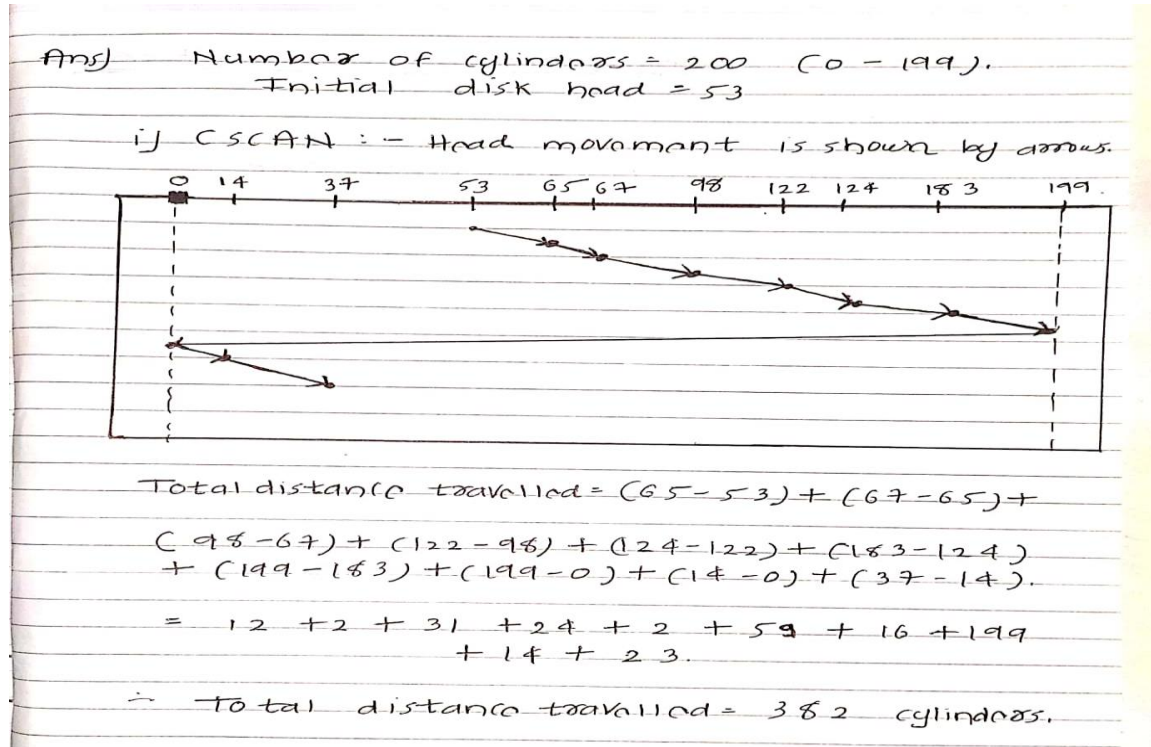 Ans) Number of cylinders = 200 (0 - 199).
Initial disk head = 53
i) CSCAN :- Head movement is shown by arrows.
0 14 37 53 65 67 98 122 124 183 199
Total distance travelled = (65-53) + (67-65) +
(98-67) + (122-98) + (124-122) + (183-124)
+ (199-183) + (199-0) + (14-0) + (37-14).
= 12 + 2 + 31 + 24 + 2 + 59 + 16 + 199
+ 14 + 23.
∴ Total distance travelled = 382 cylinders.